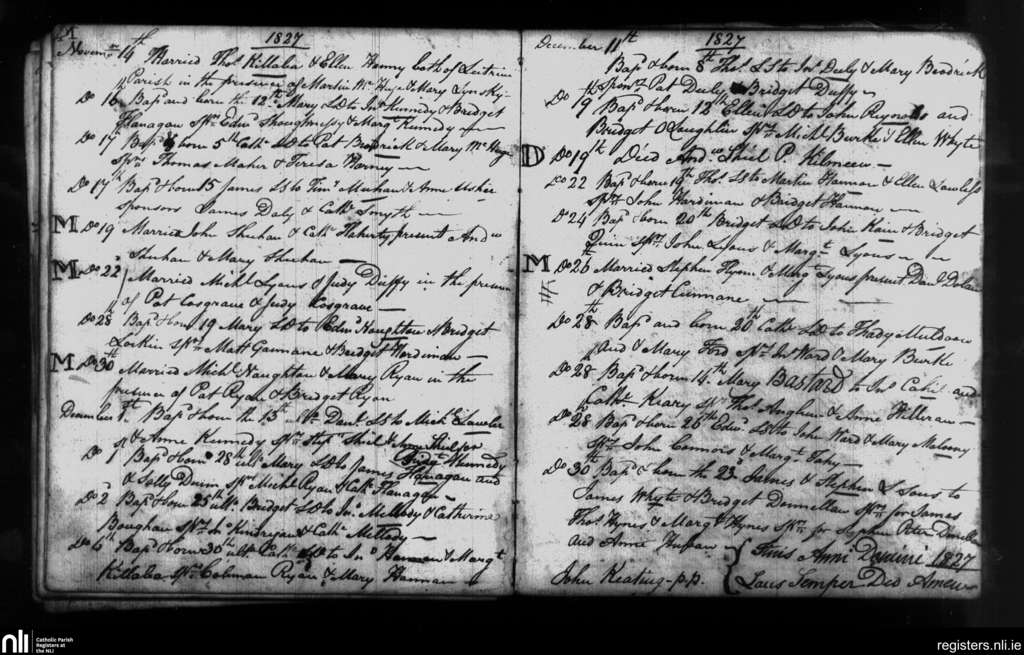 M
1827
Novem 14th Married Thos Killalea & Ellen Henny both of Leitrim
Parish in the presence of Martin Mc Hugo & Mary Lynsky
Do 16 Bapd and born the 12th Mary L D to Kennedy & Bridget
Flanagan Sprs Edwd Shoughnessy & Margt Kennedy
Do 17th Bapd & born 5th Cathe L D to Pat Brodrick & Mary Mc
Sprs Thomas Maher & Teresa
Do 17th Bapd & born 15 James L S to Timy & Anne
Sponsors James Daly & Cathe Smyth
M Do 19 Married John Shehan & Cathe Flaherty present Andw
Shehan & Mary Shehan
M Do 22 Married Michl Lyons & Judy Duffy in the presence
of Pat Cosgrave & Judy Cosgrave
Do 28 Bapd & born 19 Mary L D to Edwd Naughton & Bridget
Larkin Sprs Matt Gannane & Bridget Hardiman
M Do 30th Married Michl Naughton & Mary Ryan in the
presence of Pat Ryan & Bridget Ryan
December 1st Bapd & born the 13th Danl L S to Michl Lawler
& Anne Kennedy Sprs Shiel &
Bridgt Kennedy
Do 1 Bapd & born 28th ult Mary L D to James Flanagan and
& Sally Sprs Michl Ryan & Cathe Flanagan
Do 2 Bapd & born 25th ult Bridget L D to Jno & Catherine
Boughan Sprs Jno & Cathe
Do 6th Bapd & born 30th ult Cathe L D to Jno Hannan & Margt
Killalea Sprs Colman Ryan & Mary Hannan
December 11th
1827
Bapd & born 8th Thos L S to Jno Deely & Mary Brodrick
Sponrs Pat Deely & Bridget Duffy
Do 19 Bapd & born 12th Ellen L D to John Reynolds and
Bridget OLoughlin Sprs Michl Burke & Ellen Whyte
D Do 19th Died Andw Shiel P. Kilmeen
Do 22 Bapd & born 19th Thos L S to Martin Hannan & Ellen Lawless
Sprs John Hardiman & Bridget Hannan
Do 24 Bapd & born 20th Bridget L D to John Kain & Bridget
Quin Sprs John Lyons & Margt Lyons
M Do 26 Married Stephen & Margt Lyons present Danl Dolan
& Bridget Cunnane
Do 28th Bapd and born 26th Cathe L D to Thady Muldoon
and & Mary Ford Sprs Jno Ward & Mary Burke
Do 28 Bapd & born 14th Mary Bastard to Jno Cahil and
Cathe Keary Sprs Thos & Anne
Do 28 Bapd & born 26th Edwd L D to John Ward & Mary Malony
Sprs John Connors & Margt Fahy
Do 30th Bapd & born the 23 James & Stephen L Sons to
James Whyte & Bridget Donnellan Sprs for James
Thos Hynes & Margt Hynes Sprs for Stephen Peter
and Anne
Finis Anni Domini 1827
John Keating p.p.
Laus Semper Deo Amen
nli Catholic Parish
Registers at
the NLI
registers.nli.ie